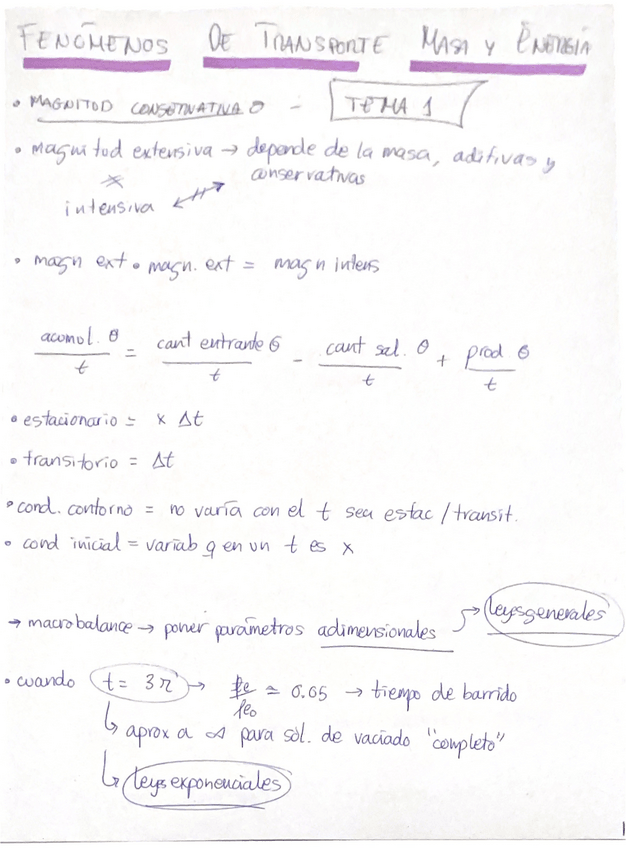 FENÓMENOS DE TRANSPORTE MASA Y ENERGÍA
• MAGNITUD CONSERVATIVA θ - TEMA 1
• magnitud extensiva → depende de la masa, aditivas y
conservativas
intensiva
• magn ext • magn. ext = magn intens
acumul. θ / t = cant entrante θ / t - cant sal. θ / t + prod θ / t
• estacionario = x Δt
• transitorio = Δt
• cond. contorno = no varía con el t sea estac/transit.
• cond inicial = variab q en un t es x
→ macrobalance → poner parámetros adimensionales → leyes generales
• cuando t = 3π → / ≃ 0.05 → tiempo de barrido
↳ aprox a ∞ para sol. de vaciado "completo"
↳ leyes exponenciales
1